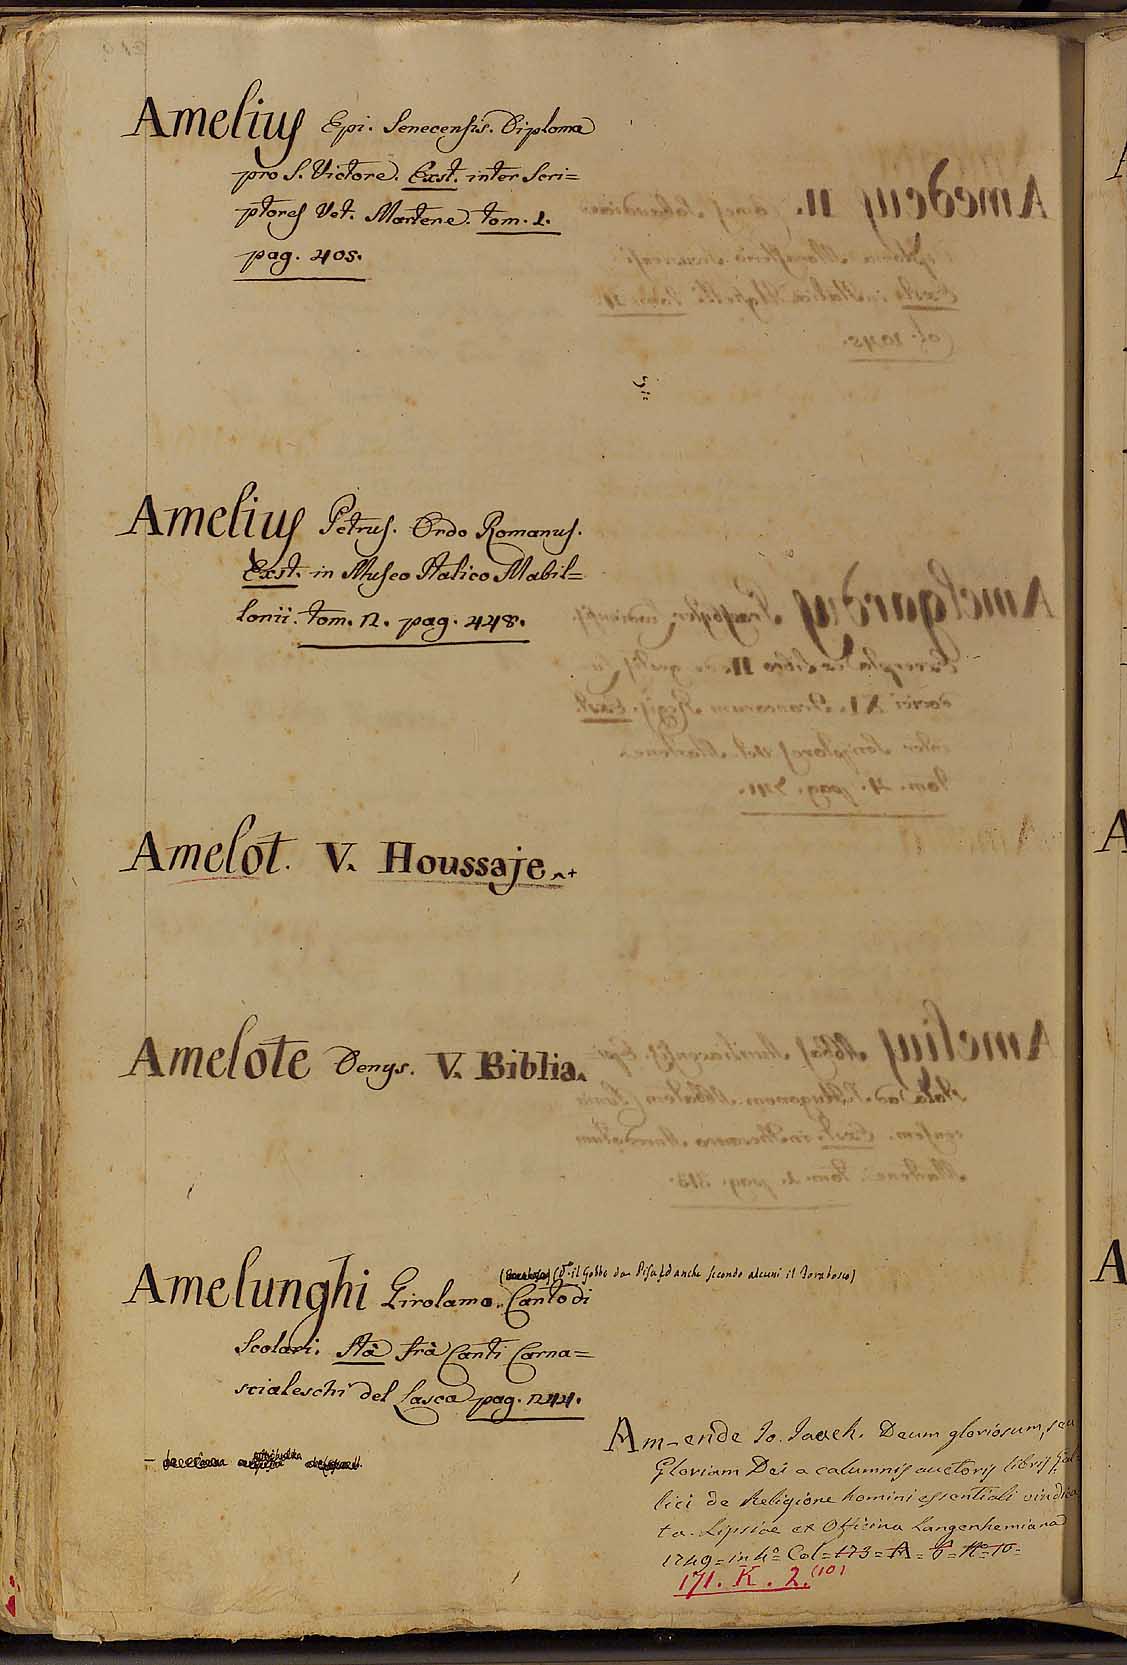 Amelius Epi. Senecensis. Diploma
pro S. Victore. Exst. inter Scri=
ptores Vet. Martene. tom. 1.
pag. 405.
Amelius Petrus. Ordo Romanus.
Exst. in Museo Italico Mabil=
lonii. tom. 2. pag. 448.
Amelot. V. Houssaje.+
Amelote Denys. V. Biblia.
(d.º il Gobbo da Pisa, ed anche secondo alcuni il Forabosco)
Amelunghi Girolamo. Canto di
Scolari. Stà frà Canti Carna=
scialeschi del Lasca pag. 244.
Am-ende Jo. Joach. Deum gloriosum, seu
Gloriam Dei a calumnijs auctoris libri Gal=
lici de Religione homini essentiali vindica
ta. Lipsiae ex Officina Langenhemiana
1749 = in 4º = Col = 173 = A = 6 = Nº 10 =
171. K. 2. (10)